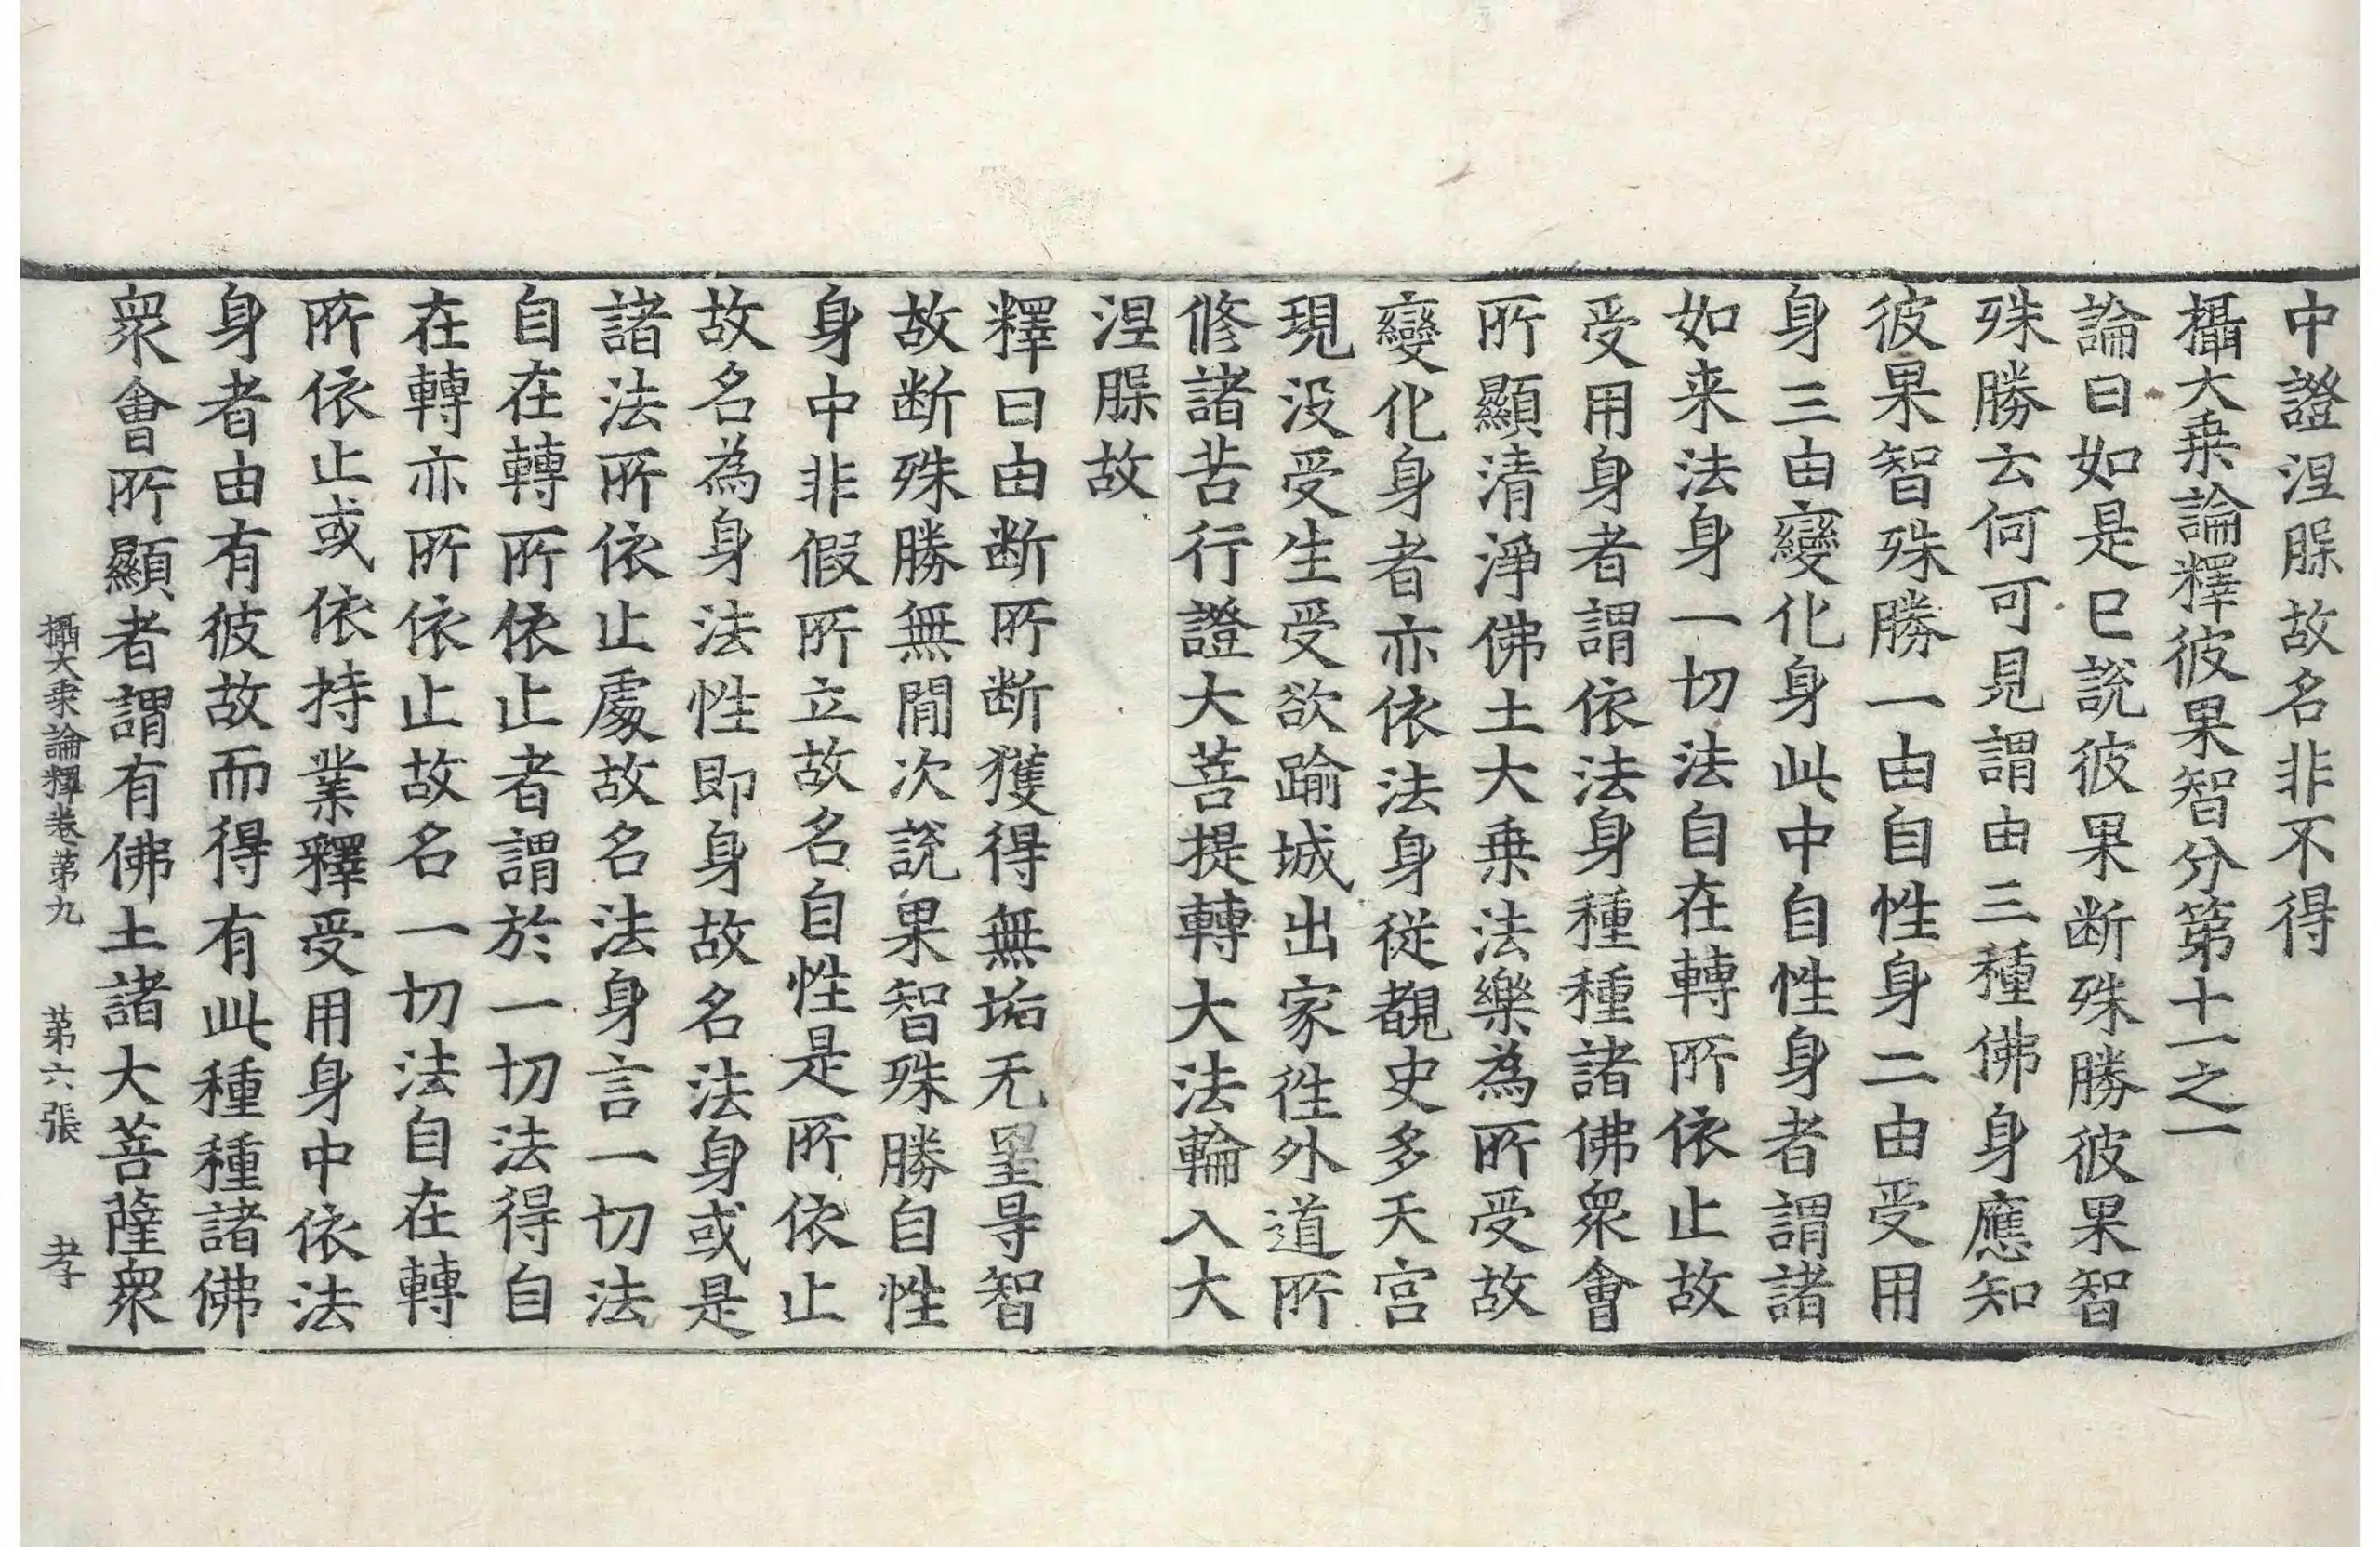 中證涅槃故名非不得
攝大乗論釋彼果智分第十一之一
論曰如是已說彼果断殊勝彼果智
殊勝云何可見謂由三種佛身應知
彼果智殊勝一由自性身二由受用
身三由變化身此中自性身者謂諸
如来法身一切法自在轉所依止故
受用身者謂依法身種種諸佛衆會
所顯清淨佛土大乗法樂為所受故
變化身者亦依法身從覩史多天宫
現没受生受欲踰城出家徃外道所
修諸苦行證大菩提轉大法輪入大
涅槃故
釋曰由断所断獲得無垢无罣㝵智
故断殊勝無閒次說果智殊勝自性
身中非假所立故名自性是所依止
故名為身法性即身故名法身或是
諸法所依止處故名法身言一切法
自在轉所依止者謂於一切法得自
在轉亦所依止故名一切法自在轉
所依止或依持業釋受用身中依法
身者由有彼故而得有此種種諸佛
衆會所顯者謂有佛土諸大菩薩衆
攝大乗論釋卷第九 第六張 孝